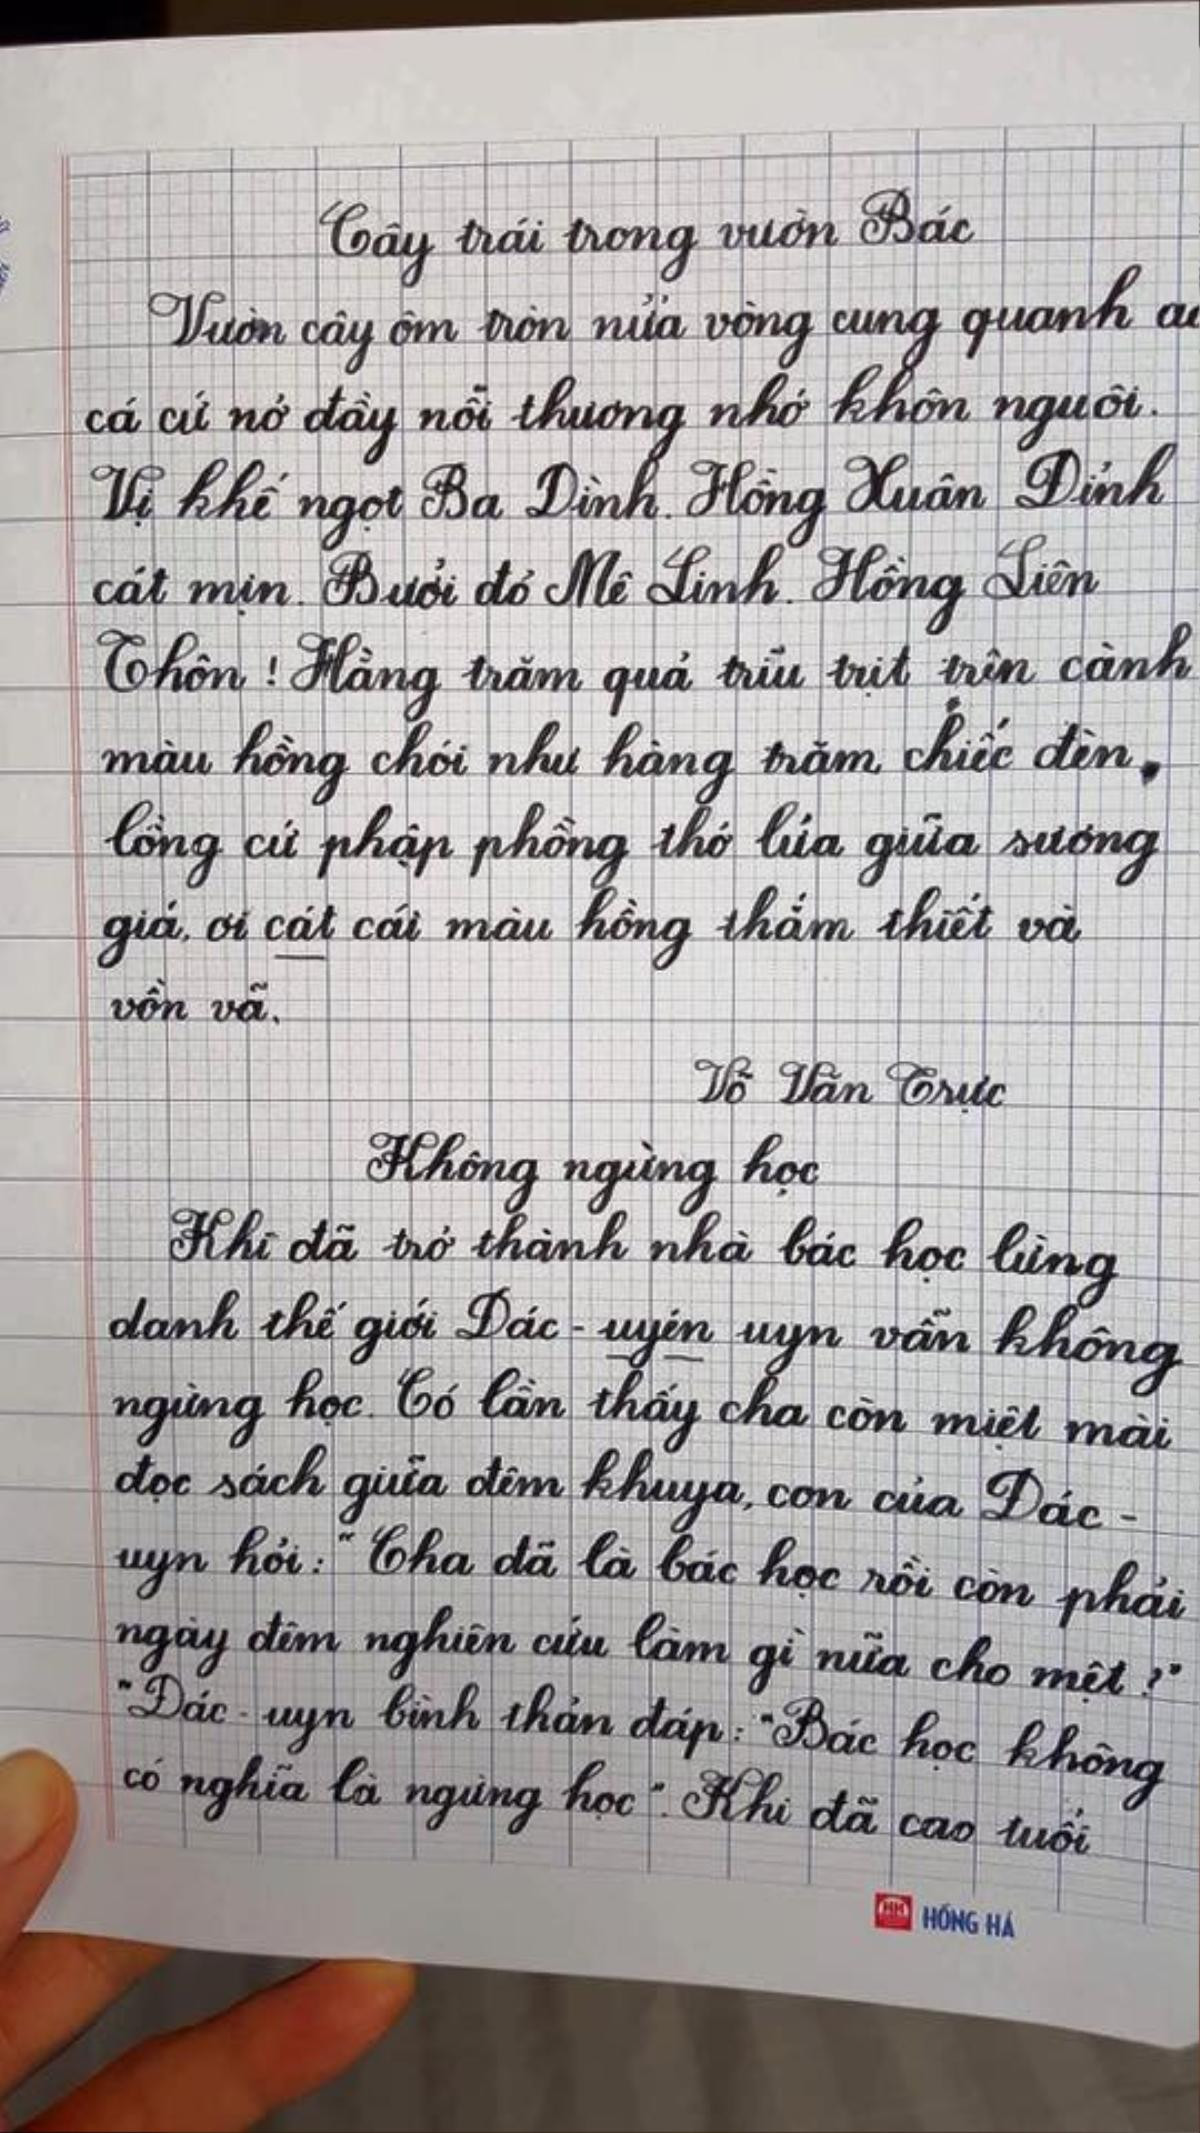 Cây trái trong vườn Bác
Vườn cây ôm tròn nửa vòng cung quanh
cá cứ nở đầy nỗi thương nhớ khôn nguôi.
Vị khế ngọt Ba Đình. Hồng Xuân Đỉnh
cát mịn. Bưởi đỏ Mê Linh. Hồng Liên
Thôn ! Hằng trăm quả trĩu trịt trên cành
màu hồng chói như hàng trăm chiếc đèn
lồng cứ phập phồng thở lúa giữa sương
giá, ơi cát cái màu hồng thắm thiết và
vồn vã.
Võ Văn Trực
Không ngừng học
Khi đã trở thành nhà bác học lừng
danh thế giới Đác - uyén uyn vẫn không
ngừng học. Có lần thấy cha còn miệt mài
đọc sách giữa đêm khuya, con của Đác -
uyn hỏi : "Cha đã là bác học rồi còn phải
ngày đêm nghiên cứu làm gì nữa cho mệt ?"
"Đác - uyn bình thản đáp : "Bác học không
có nghĩa là ngừng học". Khi đã cao tuổi
HỒNG HÀ